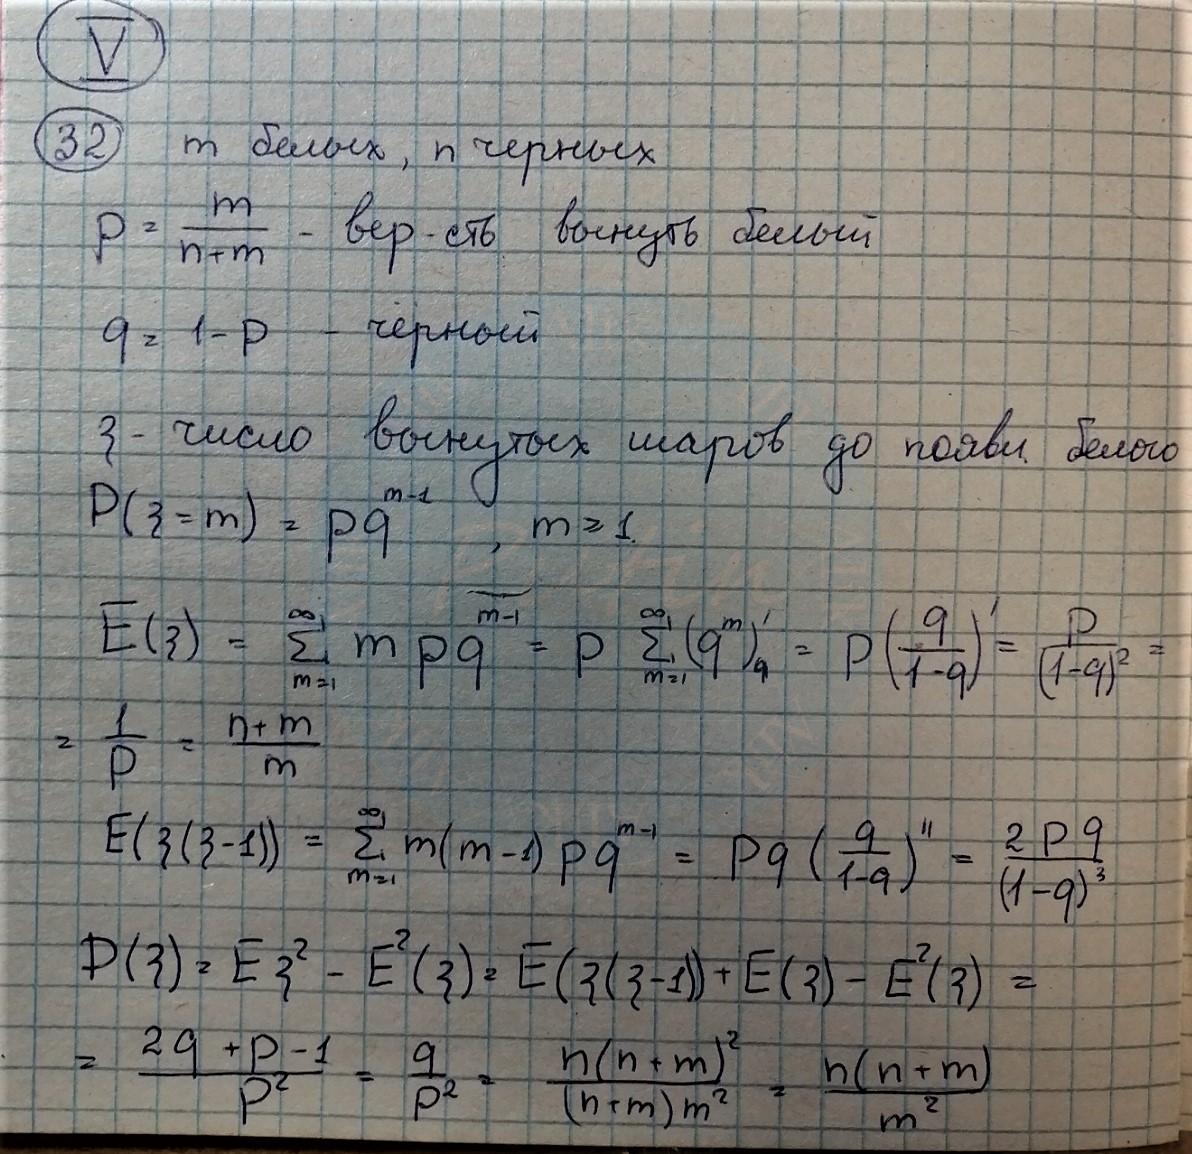 V
32 m белых, n черных
p = m/(n+m) - вер-сть вынуть белый
q = 1-p - чёрный
ξ - число вынутых шаров до появи. белого
P(ξ=m) = pq^(m-1), m≥1.
E(ξ) = Σ_(m=1)^∞ m pq^(m-1) = p Σ_(m=1)^∞ (q^m)'_q = p(q/(1-q))' = p/(1-q)² =
= 1/p = (n+m)/m
E(ξ(ξ-1)) = Σ_(m=1)^∞ m(m-1) pq^(m-1) = pq (q/(1-q))'' = 2pq/(1-q)³
D(ξ) = Eξ² - E²(ξ) = E(ξ(ξ-1)) + E(ξ) - E²(ξ) =
= (2q+p-1)/p² = q/p² = n(n+m)²/((n+m)m²) = n(n+m)/m²